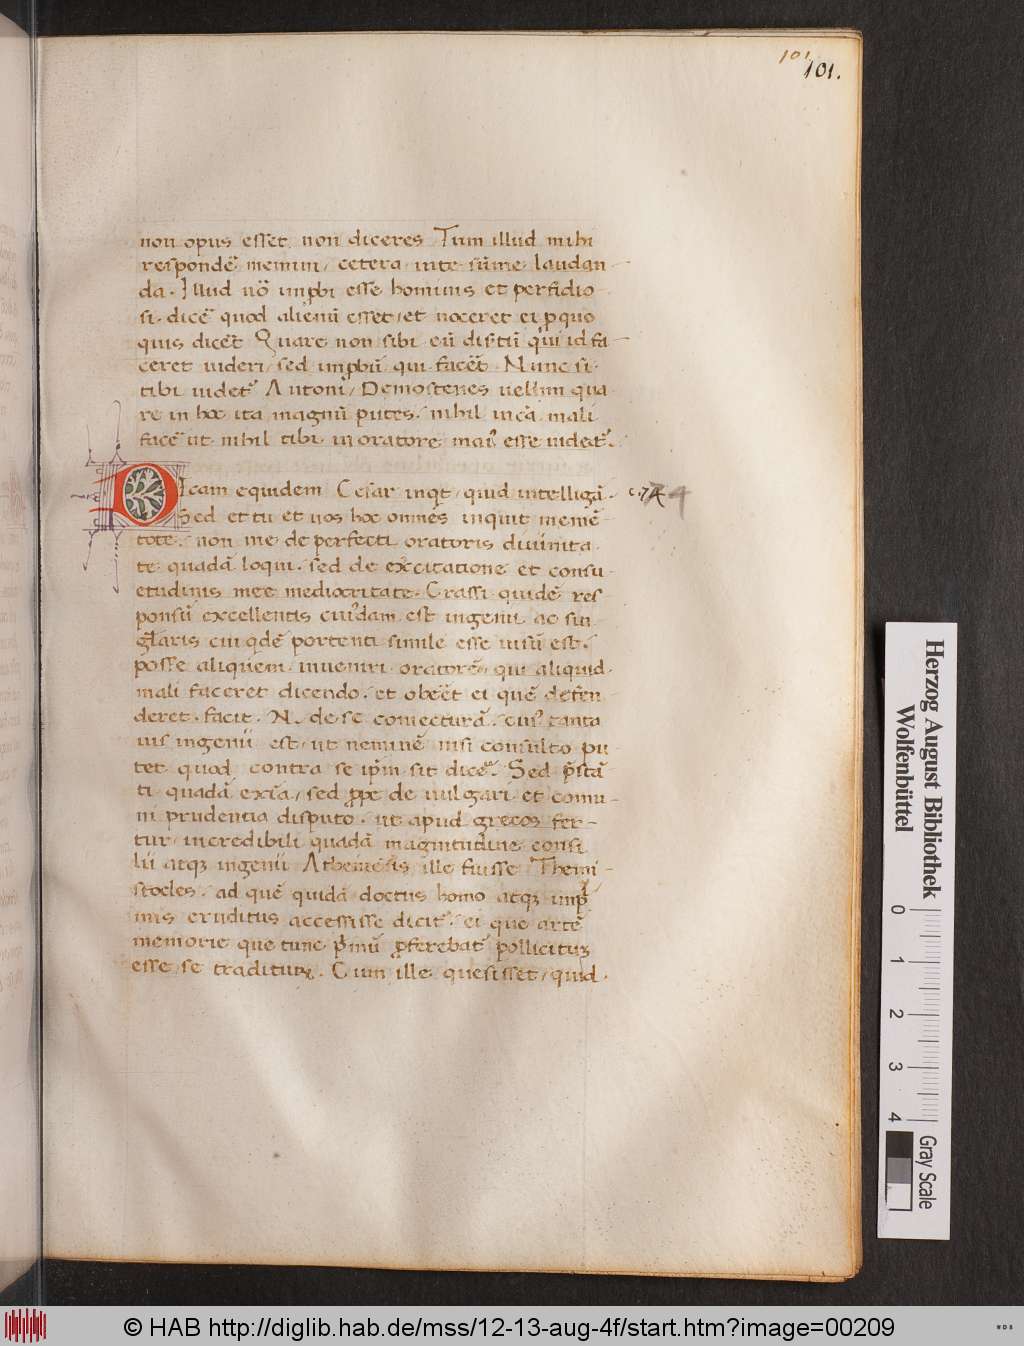 101
101.
non opus esset, non diceres Tum illud mihi
respondē memini, cetera inte sūme laudan-
da. Illud uō impbi esse hominis et perfidio
si. dicē quod alienū esset, et noceret ei p quo
quis dicēt Quare non sibi eū disertū qui id fa-
ceret uideri, sed impbū qui facēt. Nunc si.
tibi uidet Antoni, Demostenes uellim qua
re in hoc ita magnū putes. nihil mali
facē ut nihil tibi in oratore mai esse uidet.
Dicam equidem Cesar inqt, quid intelligā.
Sed et tu et uos hoc omnēs inquit memē-
tote. non me de perfecti oratoris diuinita
te quadā loqui. sed de exercitatione et consu-
etudinis mee mediocritate. Crassi quidē res
ponsū excellentis cuiusdam est ingenii ac sin
glaris cui qdē portenti simile esse uisū est.
posse aliquem inueniri oratorē, qui aliquid
mali faceret dicendo. et obēēt ei quē defen-
deret. facit. N. de se coniecturā. cui tanta
uis ingenii est, ut neminē nisi consulto pu-
tet quod contra se ipm sit dicē. Sed pstā
ti quadā exīa, sed ppe de uulgari et comu-
ni prudentia disputo. ut apud grecos fer-
tur incredibili quadā magnitudine consi
lii atqz ingenii Atheniēsis ille fuisse Themi-
stocles. ad quē quidā doctus homo atqz imp
mis eruditus accessisse dicit. ei que artē
memorie que tunc pmū pferebat pollicitus
esse se traditurus. Cum ille quesisset, quid.
c. 74
74
Herzog August Bibliothek
Wolfenbüttel
0 1 2 3 4
Gray Scale
© HAB http://diglib.hab.de/mss/12-13-aug-4f/start.htm?image=00209
WDB